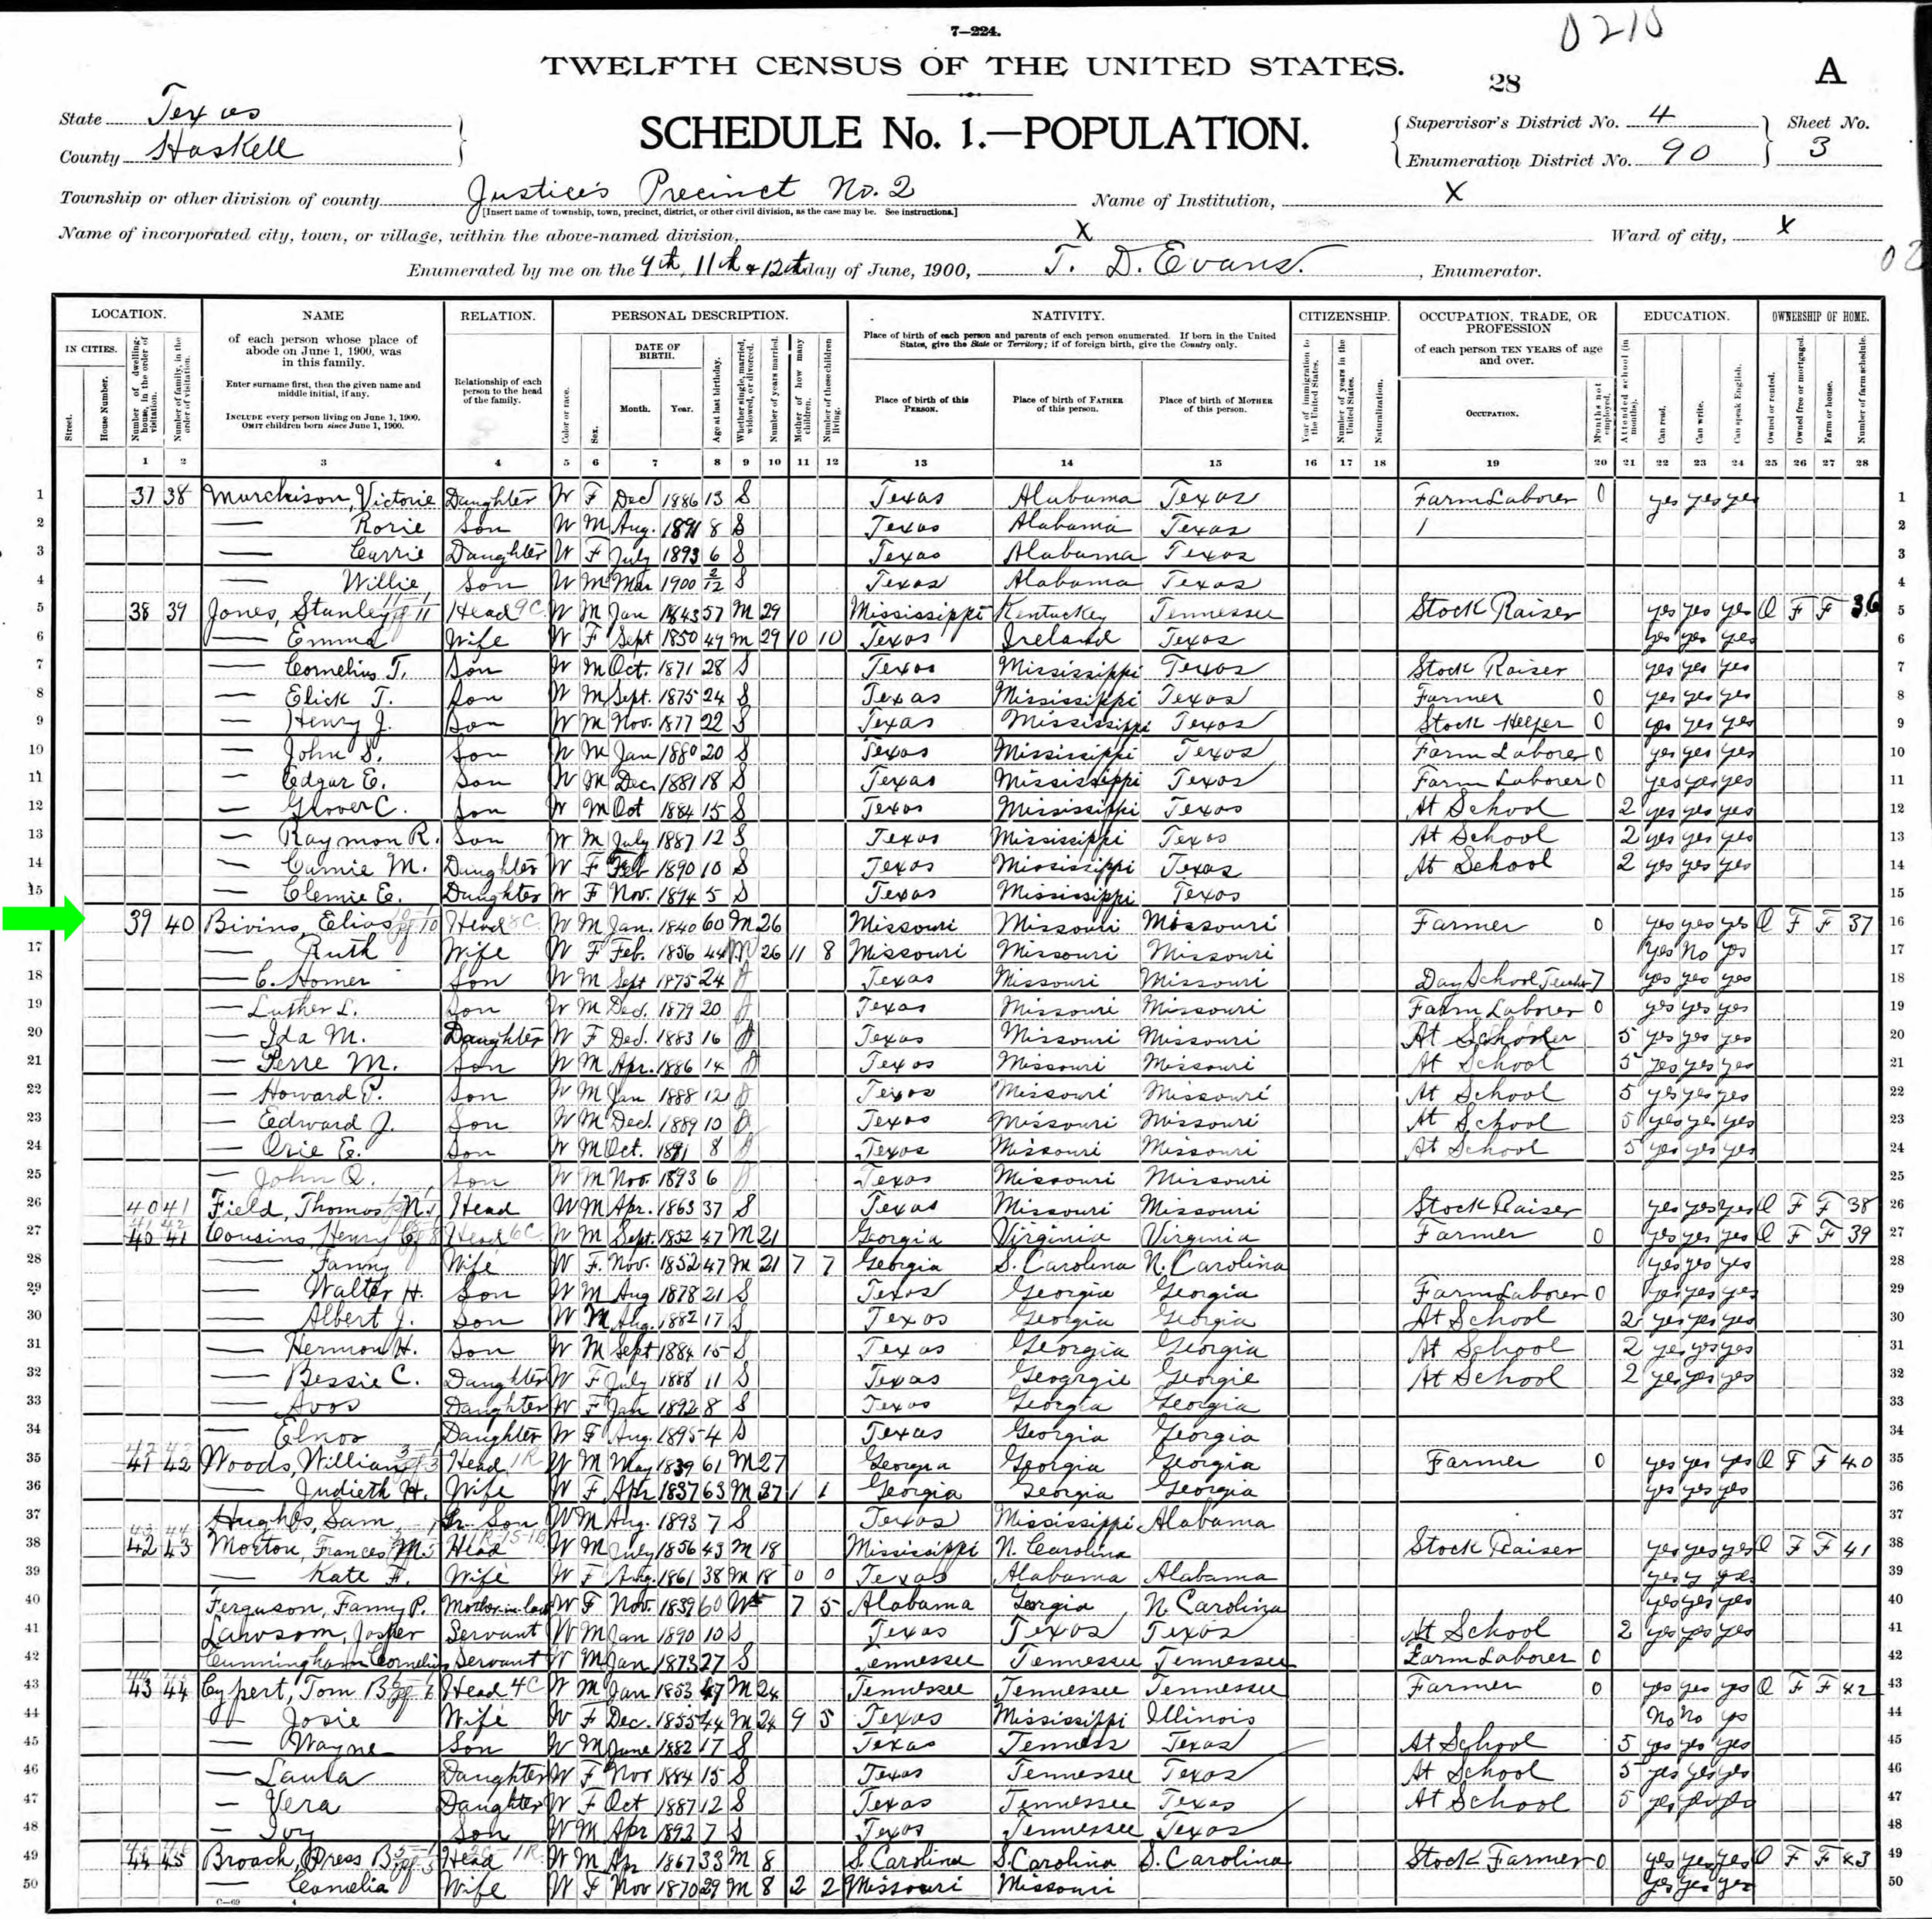 7—224.
0210
TWELFTH CENSUS OF THE UNITED STATES.
28
A
State Texas
County Haskell
SCHEDULE No. 1.—POPULATION.
Supervisor's District No. 4
Enumeration District No. 90
Sheet No. 3
Township or other division of county Justice's Precinct No. 2
[Insert name of township, town, precinct, district, or other civil division, as the case may be. See instructions.]
Name of Institution, X
Name of incorporated city, town, or village, within the above-named division, X
Ward of city, X
Enumerated by me on the 9th, 11th & 12th day of June, 1900, T. D. Evans. , Enumerator.
LOCATION. NAME RELATION. PERSONAL DESCRIPTION. NATIVITY. CITIZENSHIP. OCCUPATION, TRADE, OR PROFESSION EDUCATION. OWNERSHIP OF HOME.
IN CITIES. Street. House Number. Number of dwelling-house, in the order of visitation. Number of family, in the order of visitation.
of each person whose place of abode on June 1, 1900, was in this family.
Enter surname first, then the given name and middle initial, if any.
INCLUDE every person living on June 1, 1900. OMIT children born since June 1, 1900.
Relationship of each person to the head of the family.
Color or race. Sex. DATE OF BIRTH. Month. Year. Age at last birthday. Whether single, married, widowed, or divorced. Number of years married. Mother of how many children. Number of these children living.
Place of birth of each person and parents of each person enumerated. If born in the United States, give the State or Territory; if of foreign birth, give the Country only.
Place of birth of this PERSON. Place of birth of FATHER of this person. Place of birth of MOTHER of this person.
Year of immigration to the United States. Number of years in the United States. Naturalization.
of each person TEN YEARS of age and over.
OCCUPATION. Months not employed. Attended school (in months). Can read. Can write. Can speak English. Owned or rented. Owned free or mortgaged. Farm or house. Number of farm schedule.
1 2 3 4 5 6 7 8 9 10 11 12 13 14 15 16 17 18 19 20 21 22 23 24 25 26 27 28
1 37 38 Murchison, Victorie Daughter W F Dec 1886 13 S Texas Alabama Texas Farm Laborer 0 yes yes yes 1
2 — Rosie Son W M Aug. 1891 8 S Texas Alabama Texas 2
3 — Currie Daughter W F July 1893 6 S Texas Alabama Texas 3
4 — Willie Son W M Mar 1900 2/12 S Texas Alabama Texas 4
5 38 39 Jones, Stanley Head W M Jan 1843 57 M 29 Mississippi Kentucky Tennessee Stock Raiser yes yes yes O F F 36 5
6 — Emma Wife W F Sept 1850 49 M 29 10 10 Texas Ireland Texas yes yes yes 6
7 — Cornelius T. Son W M Oct. 1871 28 S Texas Mississippi Texas Stock Raiser yes yes yes 7
8 — Elick T. Son W M Sept. 1875 24 S Texas Mississippi Texas Farmer 0 yes yes yes 8
9 — Henry J. Son W M Nov. 1877 22 S Texas Mississippi Texas Stock Helper 0 yes yes yes 9
10 — John S. Son W M Jan 1880 20 S Texas Mississippi Texas Farm Laborer 0 yes yes yes 10
11 — Edgar E. Son W M Dec. 1881 18 S Texas Mississippi Texas Farm Laborer 0 yes yes yes 11
12 — Glover C. Son W M Oct 1884 15 S Texas Mississippi Texas At School 2 yes yes yes 12
13 — Raymon R. Son W M July 1887 12 S Texas Mississippi Texas At School 2 yes yes yes 13
14 — Carnie M. Daughter W F Feb 1890 10 S Texas Mississippi Texas At School 2 yes yes yes 14
15 — Clemie E. Daughter W F Nov. 1894 5 S Texas Mississippi Texas 15
39 40 Bivins, Elias Head W M Jan. 1840 60 M 26 Missouri Missouri Missouri Farmer 0 yes yes yes O F F 37 16
17 — Ruth Wife W F Feb. 1856 44 M 26 11 8 Missouri Missouri Missouri Yes No yes 17
18 — C. Homer Son W M Sept 1875 24 S Texas Missouri Missouri Day School Teacher 7 yes yes yes 18
19 — Luther L. Son W M Dec. 1879 20 S Texas Missouri Missouri Farm Laborer 0 yes yes yes 19
20 — Ida M. Daughter W F Dec. 1883 16 S Texas Missouri Missouri At School 5 yes yes yes 20
21 — Perre M. Son W M Apr. 1886 14 S Texas Missouri Missouri At School 5 yes yes yes 21
22 — Howard P. Son W M Jan 1888 12 S Texas Missouri Missouri At School 5 yes yes yes 22
23 — Eedward J. Son W M Dec. 1889 10 S Texas Missouri Missouri At School 5 yes yes yes 23
24 — Orie E. Son W M Oct. 1891 8 S Texas Missouri Missouri At School 5 yes yes yes 24
25 — John Q. Son W M Nov. 1893 6 S Texas Missouri Missouri 25
26 40 41 Field, Thomas N. Head W M Apr. 1863 37 S Texas Missouri Missouri Stock Raiser yes yes yes O F F 38 26
27 40 41 Cousins Henry Head 6C W M Sept. 1852 47 M 21 Georgia Virginia Virginia Farmer 0 yes yes yes O F F 39 27
28 — Fanny Wife W F. Nov. 1852 47 M 21 7 7 Georgia S. Carolina N. Carolina yes yes yes 28
29 — Walter H. Son W M Aug 1878 21 S Texas Georgia Georgia Farm Laborer 0 yes yes yes 29
30 — Albert J. Son W M Aug. 1882 17 S Texas Georgia Georgia At School 2 yes yes yes 30
31 — Hermon H. Son W M Sept 1884 15 S Texas Georgia Georgia At School 2 yes yes yes 31
32 — Bessie C. Daughter W F July 1888 11 S Texas Geogrgie Georgie At School 2 yes yes yes 32
33 — Avos Daughter W F Jan 1892 8 S Texas Georgia Georgia 33
34 — Elnor Daughter W F Aug. 1895 4 S Texas Georgia Georgia 34
35 41 42 Woods, William Head 1R W M May 1839 61 M 27 Georgia Georgia Georgia Farmer 0 yes yes yes O F F 40 35
36 — Judieth H. Wife W F Apr 1837 63 M 27 1 1 Georgia Georgia Georgia yes yes yes 36
37 Hughes, Sam Gr. Son W M Aug. 1893 7 S Texas Mississippi Alabama 37
38 42 43 Morton, Frances M. Head W M July 1856 43 M 18 Mississippi N. Carolina Stock Raiser yes yes yes O F F 41 38
39 — Kate F. Wife W F Aug. 1861 38 M 18 0 0 Texas Alabama Alabama yes y yes 39
40 Ferguson, Fanny P. Mother in law W F Nov. 1839 60 Wd 7 5 Alabama Georgia N. Carolina yes yes yes 40
41 Lawsom, Josper Servant W M Jan 1890 10 S Texas Texas Texas At School 2 yes yes yes 41
42 Cunningham Cornelius Servant W M Jan 1873 27 S Tennessee Tennessee Tennessee Farm Laborer 0 42
43 43 44 Cypert, Tom B. Head 4C W M Jan 1853 47 M 24 Tennessee Tennessee Tennessee Farmer 0 yes yes yes O F F 42 43
44 — Josie Wife W F Dec. 1855 44 M 24 9 5 Texas Mississippi Illinois No No yes 44
45 — Wayne Son W M June 1882 17 S Texas Tenness Texas At School 5 yes yes yes 45
46 — Laura Daughter W F Nov 1884 15 S Texas Tennessee Texas At School 5 yes yes yes 46
47 — Vera Daughter W F Oct 1887 12 S Texas Tennessee Texas At School 5 yes yes yes 47
48 — Ivy Son W M Apr 1893 7 S Texas Tennessee Texas 48
49 44 45 Broach, Press B. Head 1R W M Ap 1867 33 M 8 S. Carolina S. Carolina S. Carolina Stock Farmer 0 yes yes yes O F F 43 49
50 — Cornelia Wife W F Nov 1870 29 M 8 2 2 Missouri Missouri yes yes yes 50